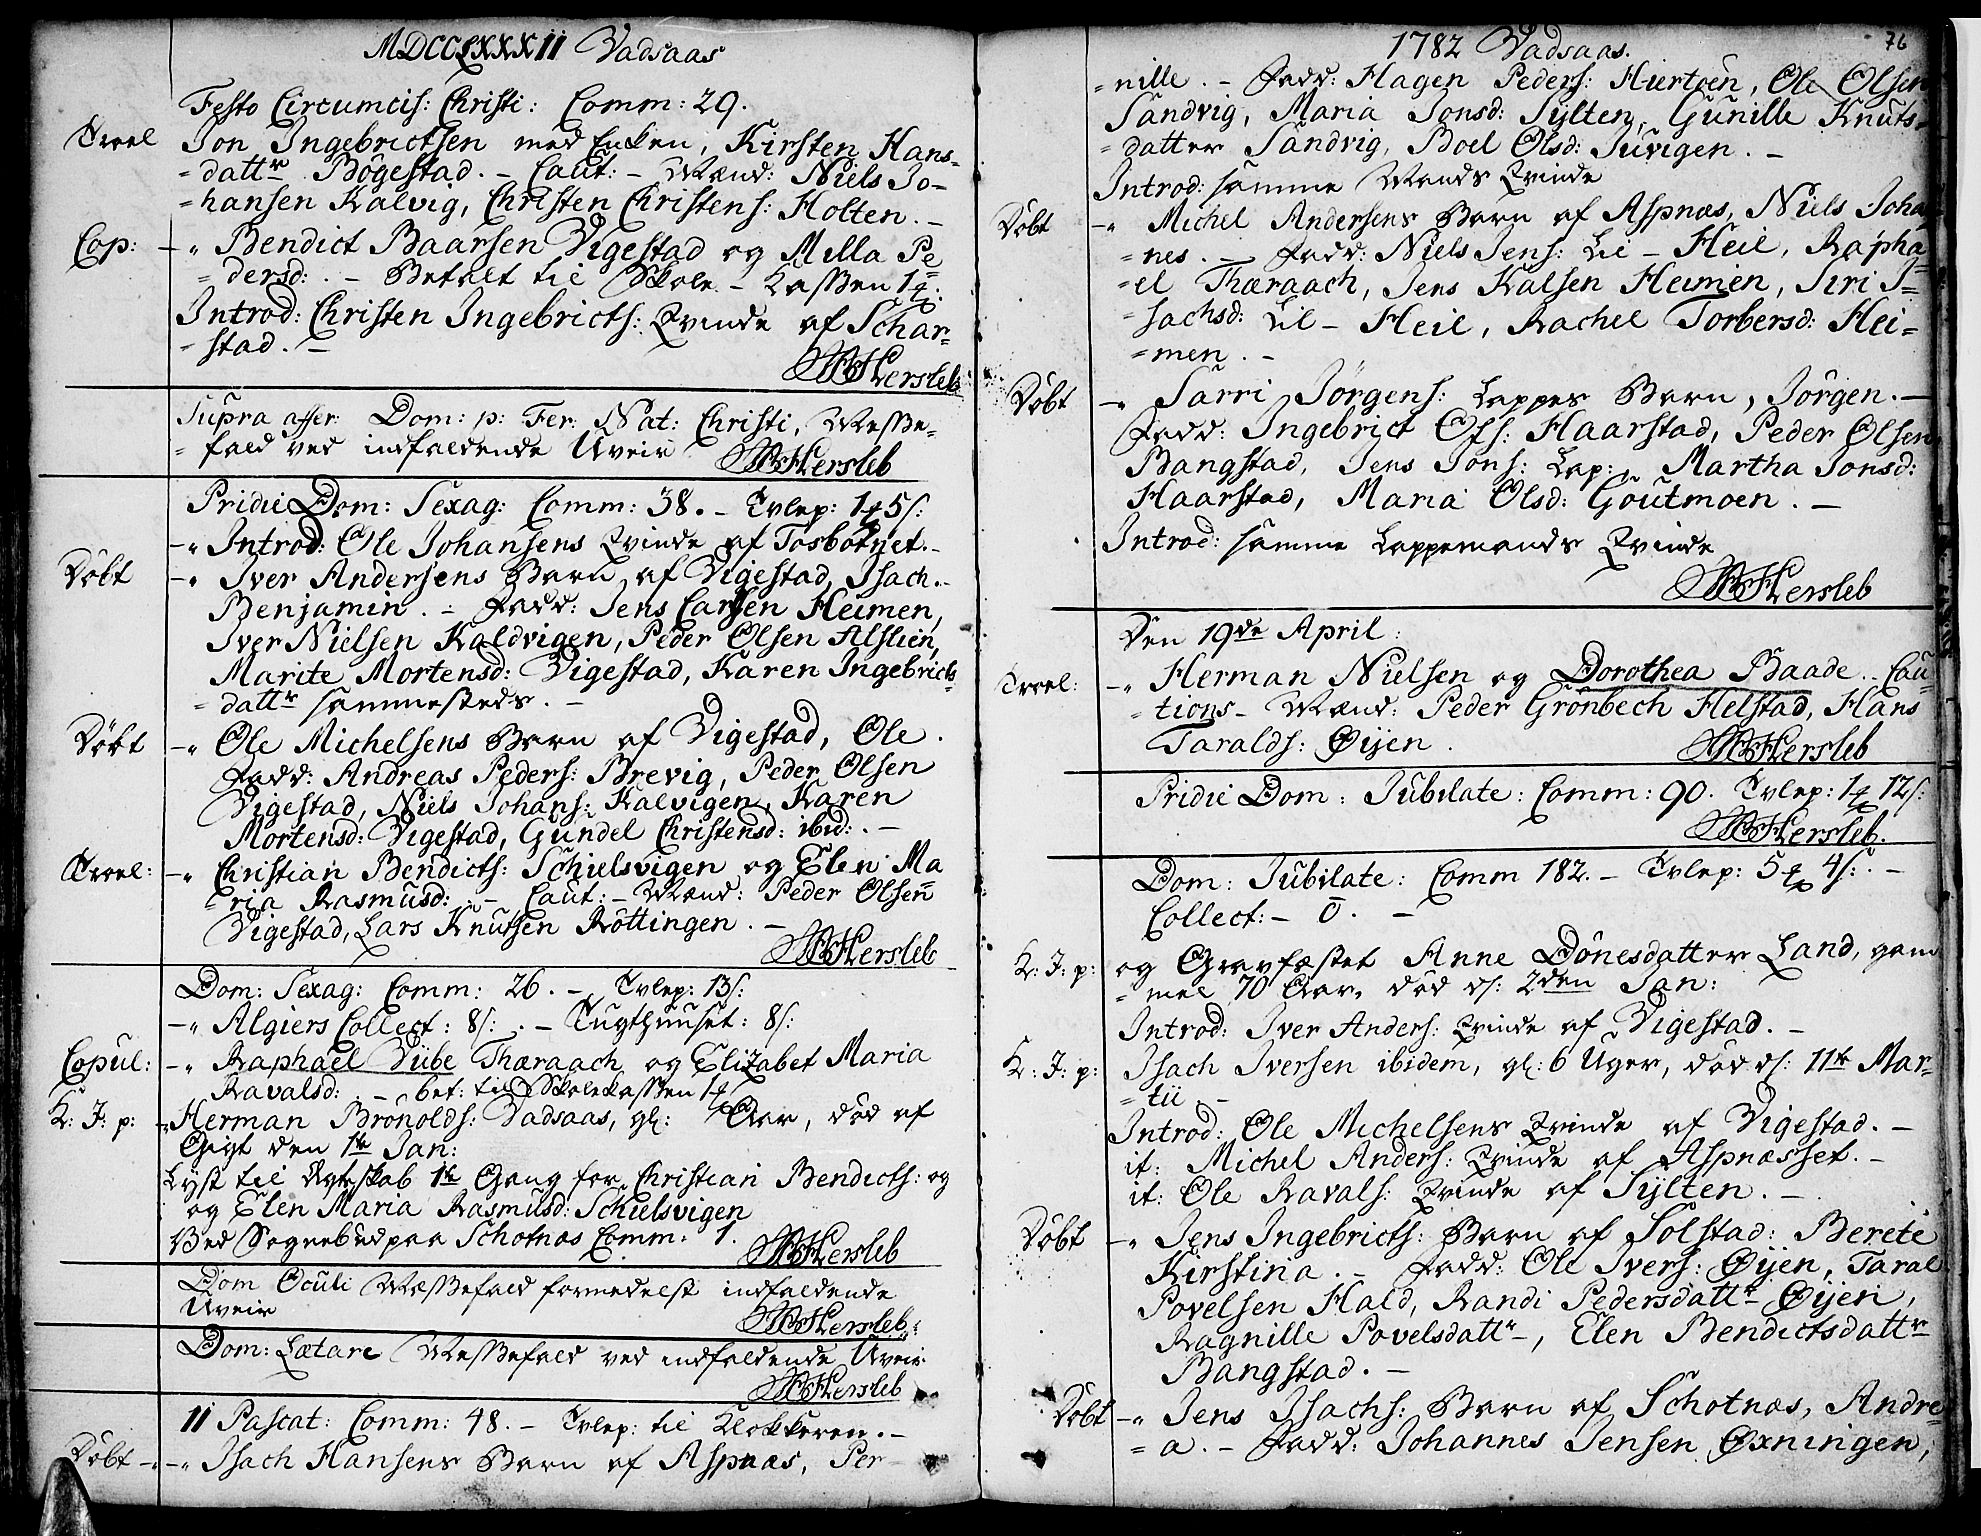 MDCCLXXXII Vadsaas
Festo Circumcis: Christi: Comm: 29.
Trol Jon Ingebrictsen med Enken, Kirsten Hans-
=dattr Bögestad. - Caut: - Mænd: Niels Jo-
=hansen Kalvig, Christen Christens: Holten. -
Cop: -" Bendict Baarsen Vigestad og Milla Pe
=dersd: . - Betalt til Skole-Cassen 1
Introd: Christen Ingebricts: Qvinde af Schar-
=stad. -
Hersleb
Supra affer: Dom: p: Fer: Nat: Christi, Messe-
=fald ved indfaldende Uveir
Hersleb
Pridie Dom: Sexag: Comm: 38. - Tvlep: 1 5/:
-" Introd: Ole Johansens Qvinde af Tosbotnet. -
Döbt -" Iver Andersens Barn af Vigestad, Isach
Benjamin. - Fadd: Jens Carlsen Heimen,
Iver Nielsen Kaldvigen, Peder Olsen Alslien,
Marite Mortensd: Vigestad, Karen Ingebricts-
=dattr sammesteds. -
Döbt -" Ole Michelsens Barn af Vigestad, Ole.
Fadd: Andreas Peders: Brevig, Peder Olsen
Vigestad, Niels Johans: Kalvigen, Karen
Mortensd: Vigestad, Gundel Christensd: ibid: . -
Trol: -" Christian Bendicts: Schielsvigen og Elen Ma
=ria Rasmusd: . - Caut: - Mænd: Peder Olsen
Vigestad, Lars Knutsen Röttingen. -
Hersleb
Dom: Sexag: Comm: 26. - Tvlep: 13/:
-" Algiers Collect: 8/: . - Tugthuuset: 8/:
Copul: -" Raphael Vübe Thæraach og Elizabet Maria
Ravalsd: . - bet: til Skolekassen 1
K: J: p: -" Herman Brönolds: Vadsaas, gl: Aar, död af
Gigt den 1te Jan:
Lyst til Ægteskab 1te Gang for Christian Bendicts: og
og Elen Maria Rasmusd: Schielsvigen
Ved Sognebud paa Schotnæs Comm: 1.
Hersleb
Dom Oculi Messefald formedelst indfaldende
Uveir
Hersleb
Dom: Lætare Messefald ved indfaldende Uveir
Hersleb
II Pascat: Comm: 48. - Tvlep: til Klokkeren. -
Döbt -" Isach Hansens Barn af Aspnæs, Per-
1782 Vadsaas. 76
=nille. - Fadd: Hagen Peders: Hiertöen, Ole Olsen
Sandvig, Maria Jonsd: Sylten, Gunille Knuts-
=datter Sandvig, Boel Olsd: Juvigen. -
Introd: samme Mands Qvinde
Döbt -" Michel Andersens Barn af Aspnæs, Niels Joha
=nes. - Fadd: Niels Jens: Lil-Heil, Rapha-
=el Thæraach, Jens Kalsen Heimen, Siri I-
=sachsd: Lil-Heil, Rachel Torbersd: Hei-
=men. -
Döbt -" Sarri Jörgens: Lappes Barn, Jörgen. -
Fadd: Ingebrict Ols: Haarstad, Peder Olsen
Bangstad, Jens Jons: Lap:, Martha Jonsd:
Haarstad, Maria Olsd: Goutmoen. -
Introd: samme Lappemands Qvinde
Hersleb
Den 19de April:
Trol: -" Herman Nielsen og Dorothea Baade. Cau-
=tions-Mænd: Peder Grönbech Helstad, Hans
Taralds: Öijen.
Hersleb
Pridie Dom: Jubilate: Comm: 90. Tvlep: 1 12/:
Hersleb.
Dom: Jubilate: Comm 182. - Tvlep: 5 4/: . -
Collect: - 0. -
K: J: p: og Gravfæstet Anne Dönesdatter Land, gam
=mel 70 Aar, död d/: 2den Jan:
Introd: Iver Anders: Qvinde af Vigestad. -
K: J: p: Isach Iversen ibidem, gl: 6 Uger, död d/: 11te Mar-
=tii -
Introd: Ole Michelsens Qvinde af Vigestad. -
it: Michel Anders: Qvinde af Aspnæsset. -
it: Ole Ravals: Qvinde af Sylten. -
Döbt -" Jens Ingebricts: Barn af Solstad: Berete
Kirstina. - Fadd: Ole Ivers: Öijen, Taral
Povelsen Hald, Randi Pedersdattr Öijen,
Ragnille Povelsdattr -, Elen Bendictsdattr
Bangstad. -
Döbt -" Jens Isachs: Barn af Schotnæs, Andre-
=a. - Fadd: Johannes Jensen Öxningen,